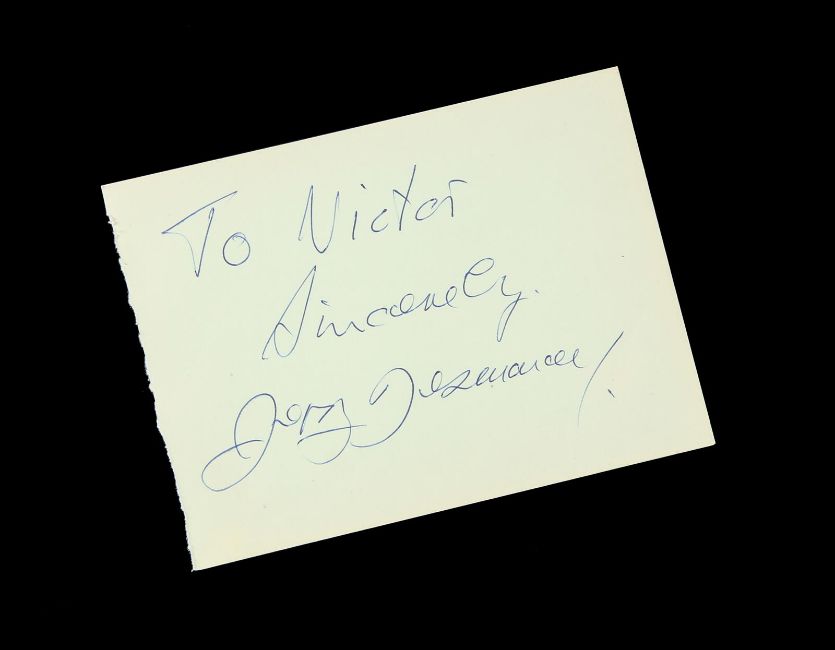 To Victor
Sincerely.
Jerry Desmonde!